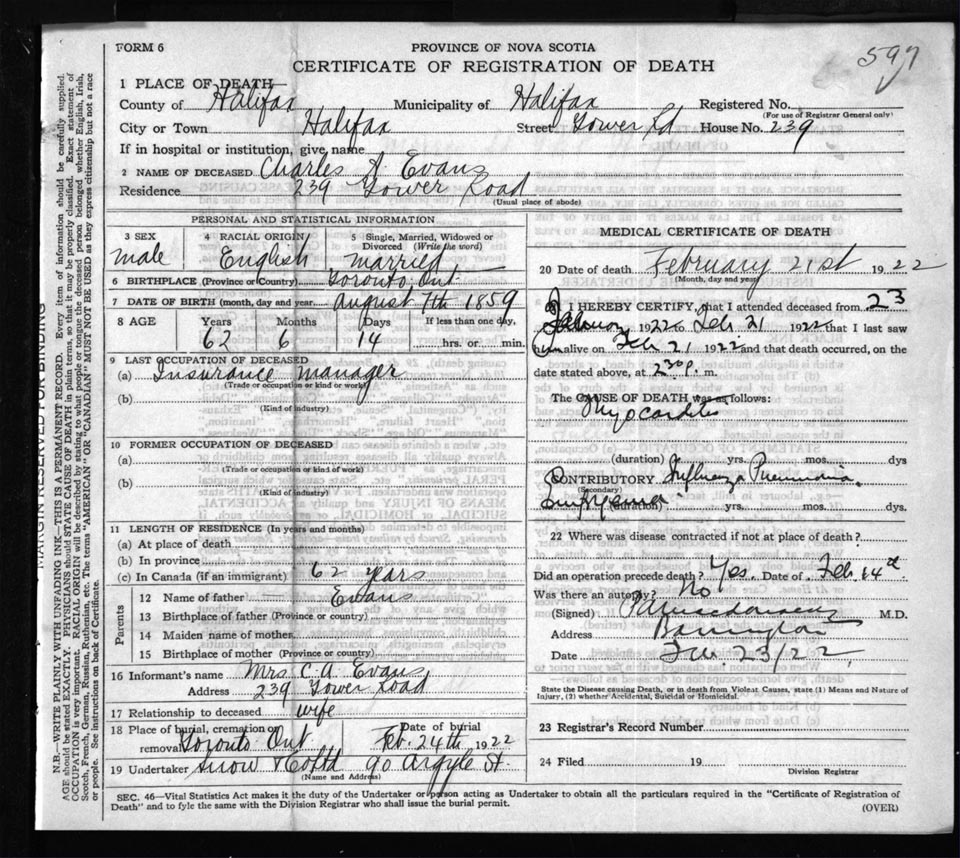 597
FORM 6
PROVINCE OF NOVA SCOTIA
CERTIFICATE OF REGISTRATION OF DEATH
1 PLACE OF DEATH
County of Halifax Municipality of Halifax Registered No.
(For use of Registrar General only)
City or Town Halifax Street Tower Rd House No. 239
If in hospital or institution, give name
2 NAME OF DECEASED Charles A Evans
Residence 239 Tower Road
(Usual place of abode)
PERSONAL AND STATISTICAL INFORMATION
3 SEX male
4 RACIAL ORIGIN English
5 Single, Married, Widowed or Divorced (Write the word) married
6 BIRTHPLACE (Province or Country) Toronto, Ont
7 DATE OF BIRTH (month, day and year) august 7th 1859
8 AGE Years Months Days If less than one day,
62 6 14 hrs. or min.
9 LAST OCCUPATION OF DECEASED
(a) Insurance manager
(Trade or occupation or kind of work)
(b)
(Kind of industry)
10 FORMER OCCUPATION OF DECEASED
(a)
(Trade or occupation or kind of work)
(b)
(Kind of industry)
11 LENGTH OF RESIDENCE (In years and months)
(a) At place of death
(b) In province
(c) In Canada (if an immigrant) 62 years
Parents
12 Name of father Evans
13 Birthplace of father (Province or country)
14 Maiden name of mother
15 Birthplace of mother (Province or country)
16 Informant's name Mrs C. A. Evans
Address 239 Tower Road
17 Relationship to deceased wife
18 Place of burial, cremation or removal Toronto Ont Date of burial Feb. 24th 1922
19 Undertaker Snow & Co Ltd 90 Argyle St.
(Name and Address)
MEDICAL CERTIFICATE OF DEATH
20 Date of death February 21st 1922
(Month, day and year)
I HEREBY CERTIFY, that I attended deceased from 23
January 1922 to Feb 21 1922 that I last saw
him alive on Feb 21 1922 and that death occurred, on the
date stated above, at 2 30 p. m.
The CAUSE OF DEATH was as follows:
Myocarditis
(duration) yrs. mos. dys
CONTRIBUTORY Influenza Pneumonia
(Secondary)
Empyema (duration) yrs. mos. dys.
22 Where was disease contracted if not at place of death?
Did an operation precede death? Yes. Date of Feb 14
Was there an autopsy? No
(Signed) M.D.
Address
Date 23/22
State the Disease causing Death, or in death from Violent Causes, state (1) Means and Nature of
Injury, (2) whether Accidental, Suicidal or Homicidal.
23 Registrar's Record Number
24 Filed 19
Division Registrar
SEC. 46—Vital Statistics Act makes it the duty of the Undertaker or person acting as Undertaker to obtain all the particulars required in the "Certificate of Registration of
Death" and to fyle the same with the Division Registrar who shall issue the burial permit.
(OVER)
MARGIN RESERVED FOR BINDING
N.B.—WRITE PLAINLY WITH UNFADING INK—THIS IS A PERMANENT RECORD. Every item of information should be carefully supplied.
AGE should be stated EXACTLY. PHYSICIANS should STATE CAUSE OF DEATH in plain terms, so that it may be properly classified. Exact statement of
OCCUPATION is very important. RACIAL ORIGIN will be described by stating to what people or tongue the deceased person belonged whether English, Irish,
Scotch, French, German, Russian, Ruthenian, etc. The terms "AMERICAN" OR "CANADIAN" MUST NOT BE USED as they express citizenship but not a race
or people. See instructions on back of Certificate.